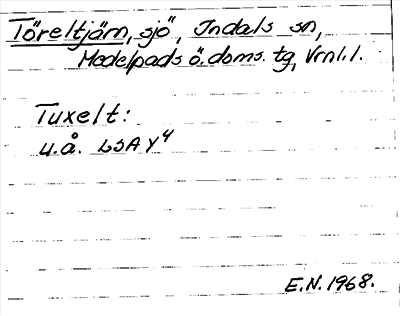 Töreltjärn, sjö, Indals sn,
Medelpads ö. doms. tg, Vrnl. l.
Tuxelt:
u.å. LSA Y4
E.N. 1968.